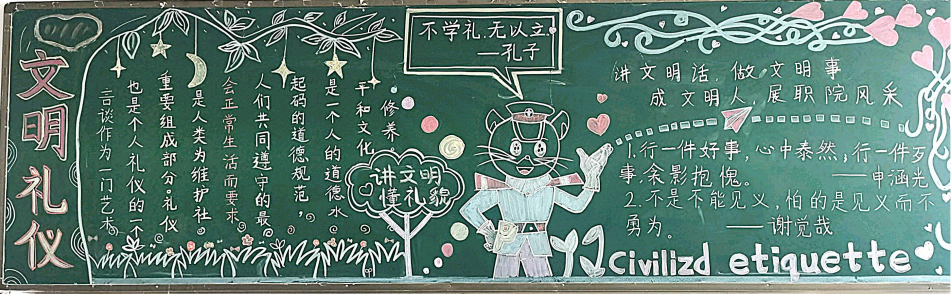 文明礼仪
言谈作为一门艺术
也是个人礼仪的一个
重要组成部分。礼仪
是人类为维护社
会正常生活而要求
人们共同遵守的最
起码的道德规范，
是一个人的道德水
平和文化
修养。
讲文明
懂礼貌
不学礼，无以立
——孔子
讲文明话，做文明事
成文明人，展职院风采
1.行一件好事，心中泰然；行一件歹
事，衾影抱愧。 ——申涵光
2.不是不能见义，怕的是见义而不
勇为。 ——谢觉哉
Civilizd etiquette